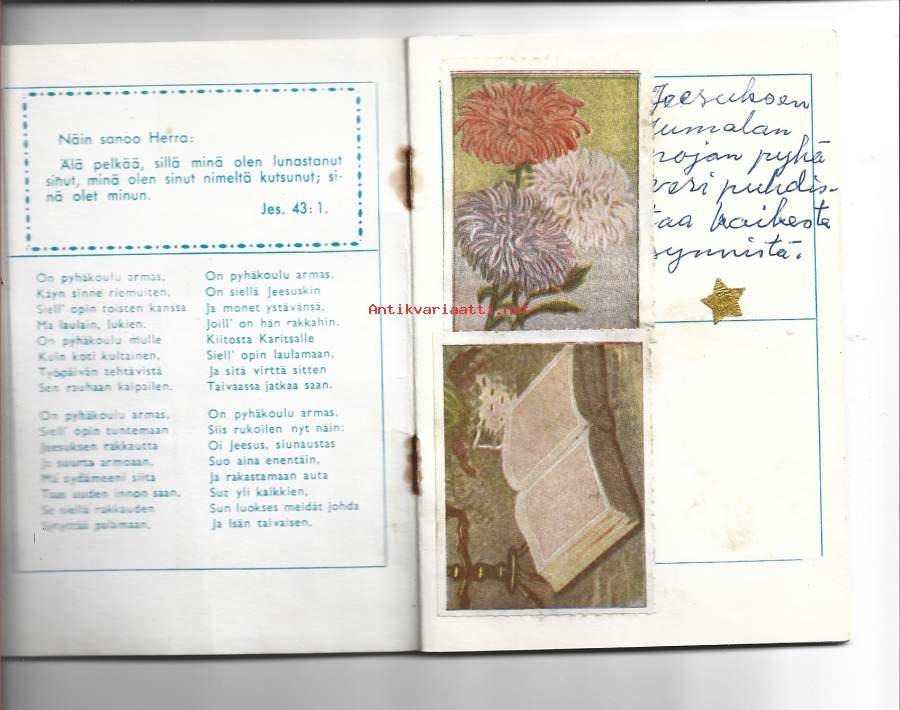 Näin sanoo Herra:
Älä pelkää, sillä minä olen lunastanut
sinut, minä olen sinut nimeltä kutsunut; si-
nä olet minun.
Jes. 43:1.
On pyhäkoulu armas,
Käyn sinne riemuiten,
Siell' opin toisten kanssa
Ma laulain, lukien.
On pyhäkoulu mulle
Kuin koti kultainen,
Työpäivän tehtävistä
Sen rauhaan kaipailen.
On pyhäkoulu armas,
Siell' opin tuntemaan
Jeesuksen rakkautta
Ja suurta armoaan.
Mu sydämeeni siitä
Taas uuden innon saan,
Se siellä rakkauden
Sytyttää palamaan.
On pyhäkoulu armas,
On siellä Jeesuskin
Ja monet ystävänsä,
Joill' on hän rakkahin.
Kiitosta Karitsalle
Siell' opin laulamaan,
Ja sitä virttä sitten
Taivaassa jatkaa saan.
On pyhäkoulu armas,
Siis rukoilen nyt näin:
Oi Jeesus, siunaustas
Suo aina enentäin,
Ja rakastamaan auta
Suz yli kaikkien,
Sun luokses meidät johda
Ja Isän taivaisen.
Jeesuksen
Jumalan
pojan pyhä
veri puhdis-
taa kaikesta
synnistä.
Antikvariaatti.net